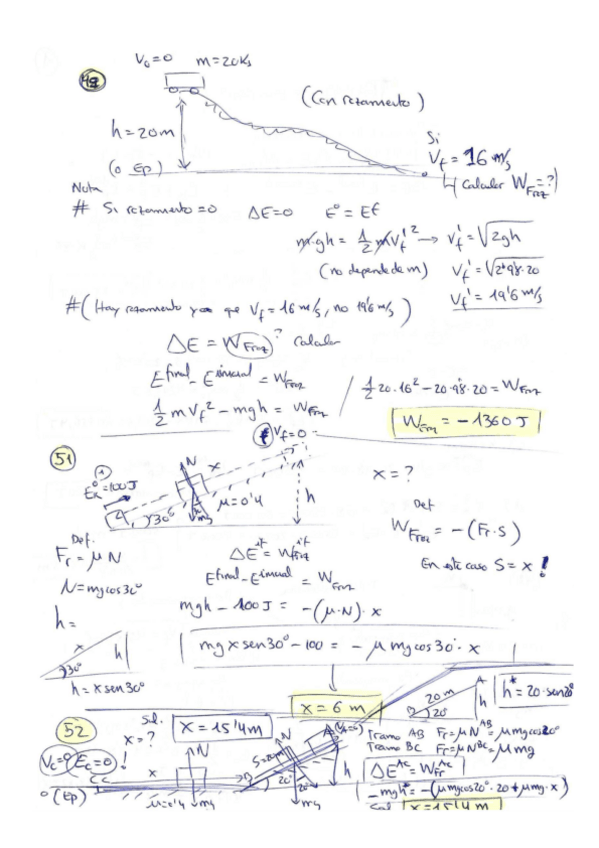 49
V₀=0 m=20Kg
(Con rozamiento)
h=20m
(0 Ep)
Si
Vf = 16 m/s
Calcular WFroz=?
Nota
# Si rozamiento=0 ΔE=0 E⁰=Ef
m·gh = 1/2 mVf'² → Vf' = √2gh
(no depende de m) Vf' = √2·9'8·20
Vf' = 19'6 m/s
#(Hay rozamiento ya que Vf = 16 m/s, no 19'6 m/s)
ΔE = WFroz ? Calcular
Efinal - Einicial = WFroz
1/2 m Vf² - mgh = WFroz
1/2 20·16² - 20·9'8·20 = WFroz
WFroz = -1360 J
51
Vf=0
Ec⁰=100J
N
x
μ=0'4
30°
mg
h
x=?
Def
WFroz = -(Fr·S)
En este caso S = x !
Def.
Fr = μN
N=mgcos30°
h=
x
h
30°
h = x sen30°
ΔE = WFroz
Efinal - Einicial = WFroz
mgh - 100J = -(μ·N)·x
mg x sen30° - 100 = - μ mg cos30°· x
x = 6 m
52
Sol.
x = 15'4m
x=?
Ec=0
x
N
μ=0'4
mg
0 (Ep)
N
B
20°
20°
mg
h
A
20m
h
20°
h* = 20·sen20°
Tramo AB Fr=μNAB=μmgcos20°
Tramo BC Fr=μNBC=μmg
ΔEAC = WFrAC
-mgh* = -(μmgcos20°·20+μmg·x)
x=15'4m